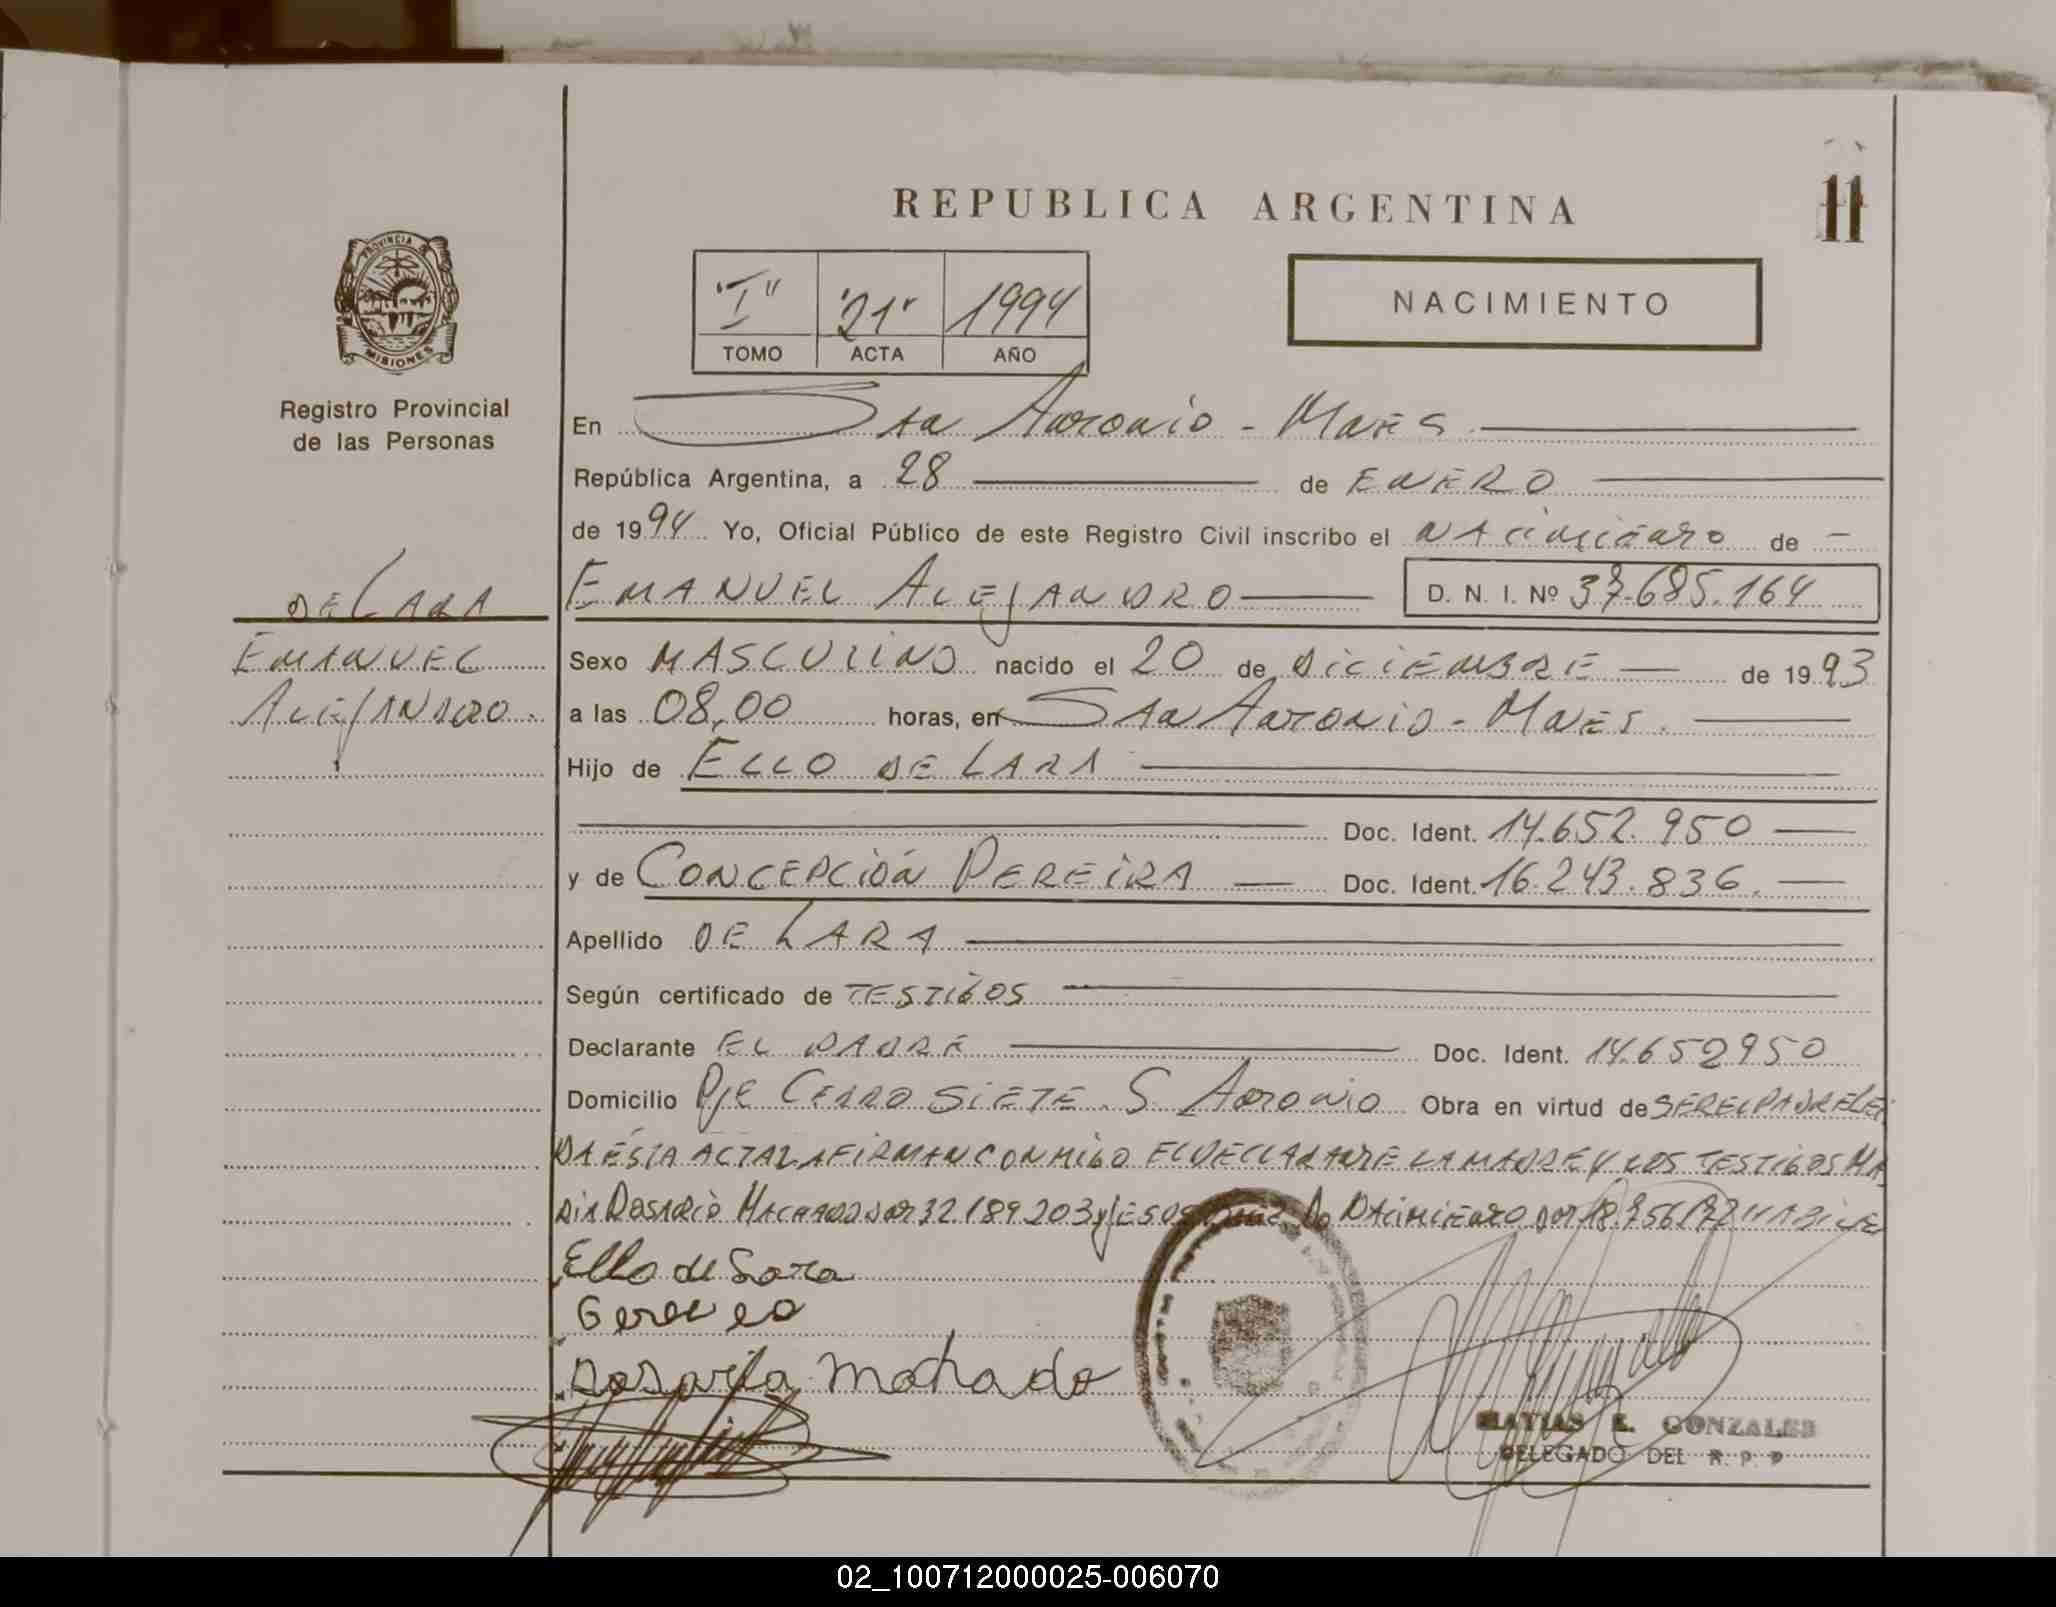 REPUBLICA ARGENTINA
11
PROVINCIA DE
MISIONES
Registro Provincial
de las Personas
"I" "21" 1994
TOMO ACTA AÑO
NACIMIENTO
En San Antonio - Mnes
República Argentina, a 28 de ENERO
de 1994 Yo, Oficial Público de este Registro Civil inscribo el NACIMIENTO de
DE LARA
EMANUEL
ALEJANDRO.
EMANUEL ALEJANDRO D. N. I. Nº 37.685.164
Sexo MASCULINO nacido el 20 de DICIEMBRE de 1993
a las 08,00 horas, en San Antonio - Mnes.
Hijo de ELLO DE LARA
Doc. Ident. 14.652.950
y de CONCEPCIÓN PEREIRA Doc. Ident. 16.243.836.
Apellido DE LARA
Según certificado de TESTIGOS
Declarante EL PADRE Doc. Ident. 14.652950
Domicilio Pje CERRO SIETE. S. Antonio Obra en virtud de SER EL PADRE LEI
DA ESTA ACTA LA FIRMAN CONMIGO EL DECLARANTE LA MADRE Y LOS TESTIGOS MA
RIA ROSARIO MACHADO 32.189.203 y
Ello de Lara
Machado
MATIAS E. GONZALES
DELEGADO DEL R. P. P
02_100712000025-006070